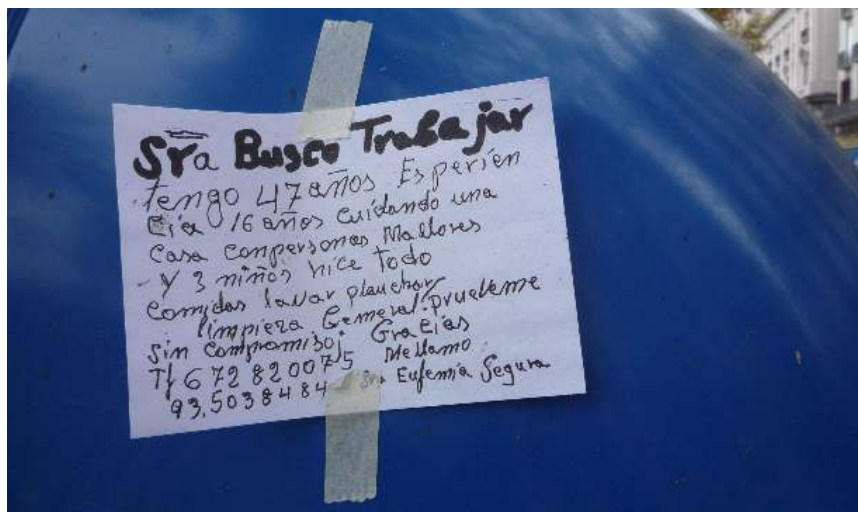 Sra Busco Trabajar
tengo 47 años Esperien
cia 16 años cuidando una
Casa con personas Mallores
- Y 3 niños hice Todo
comidas lavar planchar
limpieza General. Prueveme
Sin Compromiso; Gracias
Tf 672820075 Me llamo
93,5038484 Sra Eufemia Segura